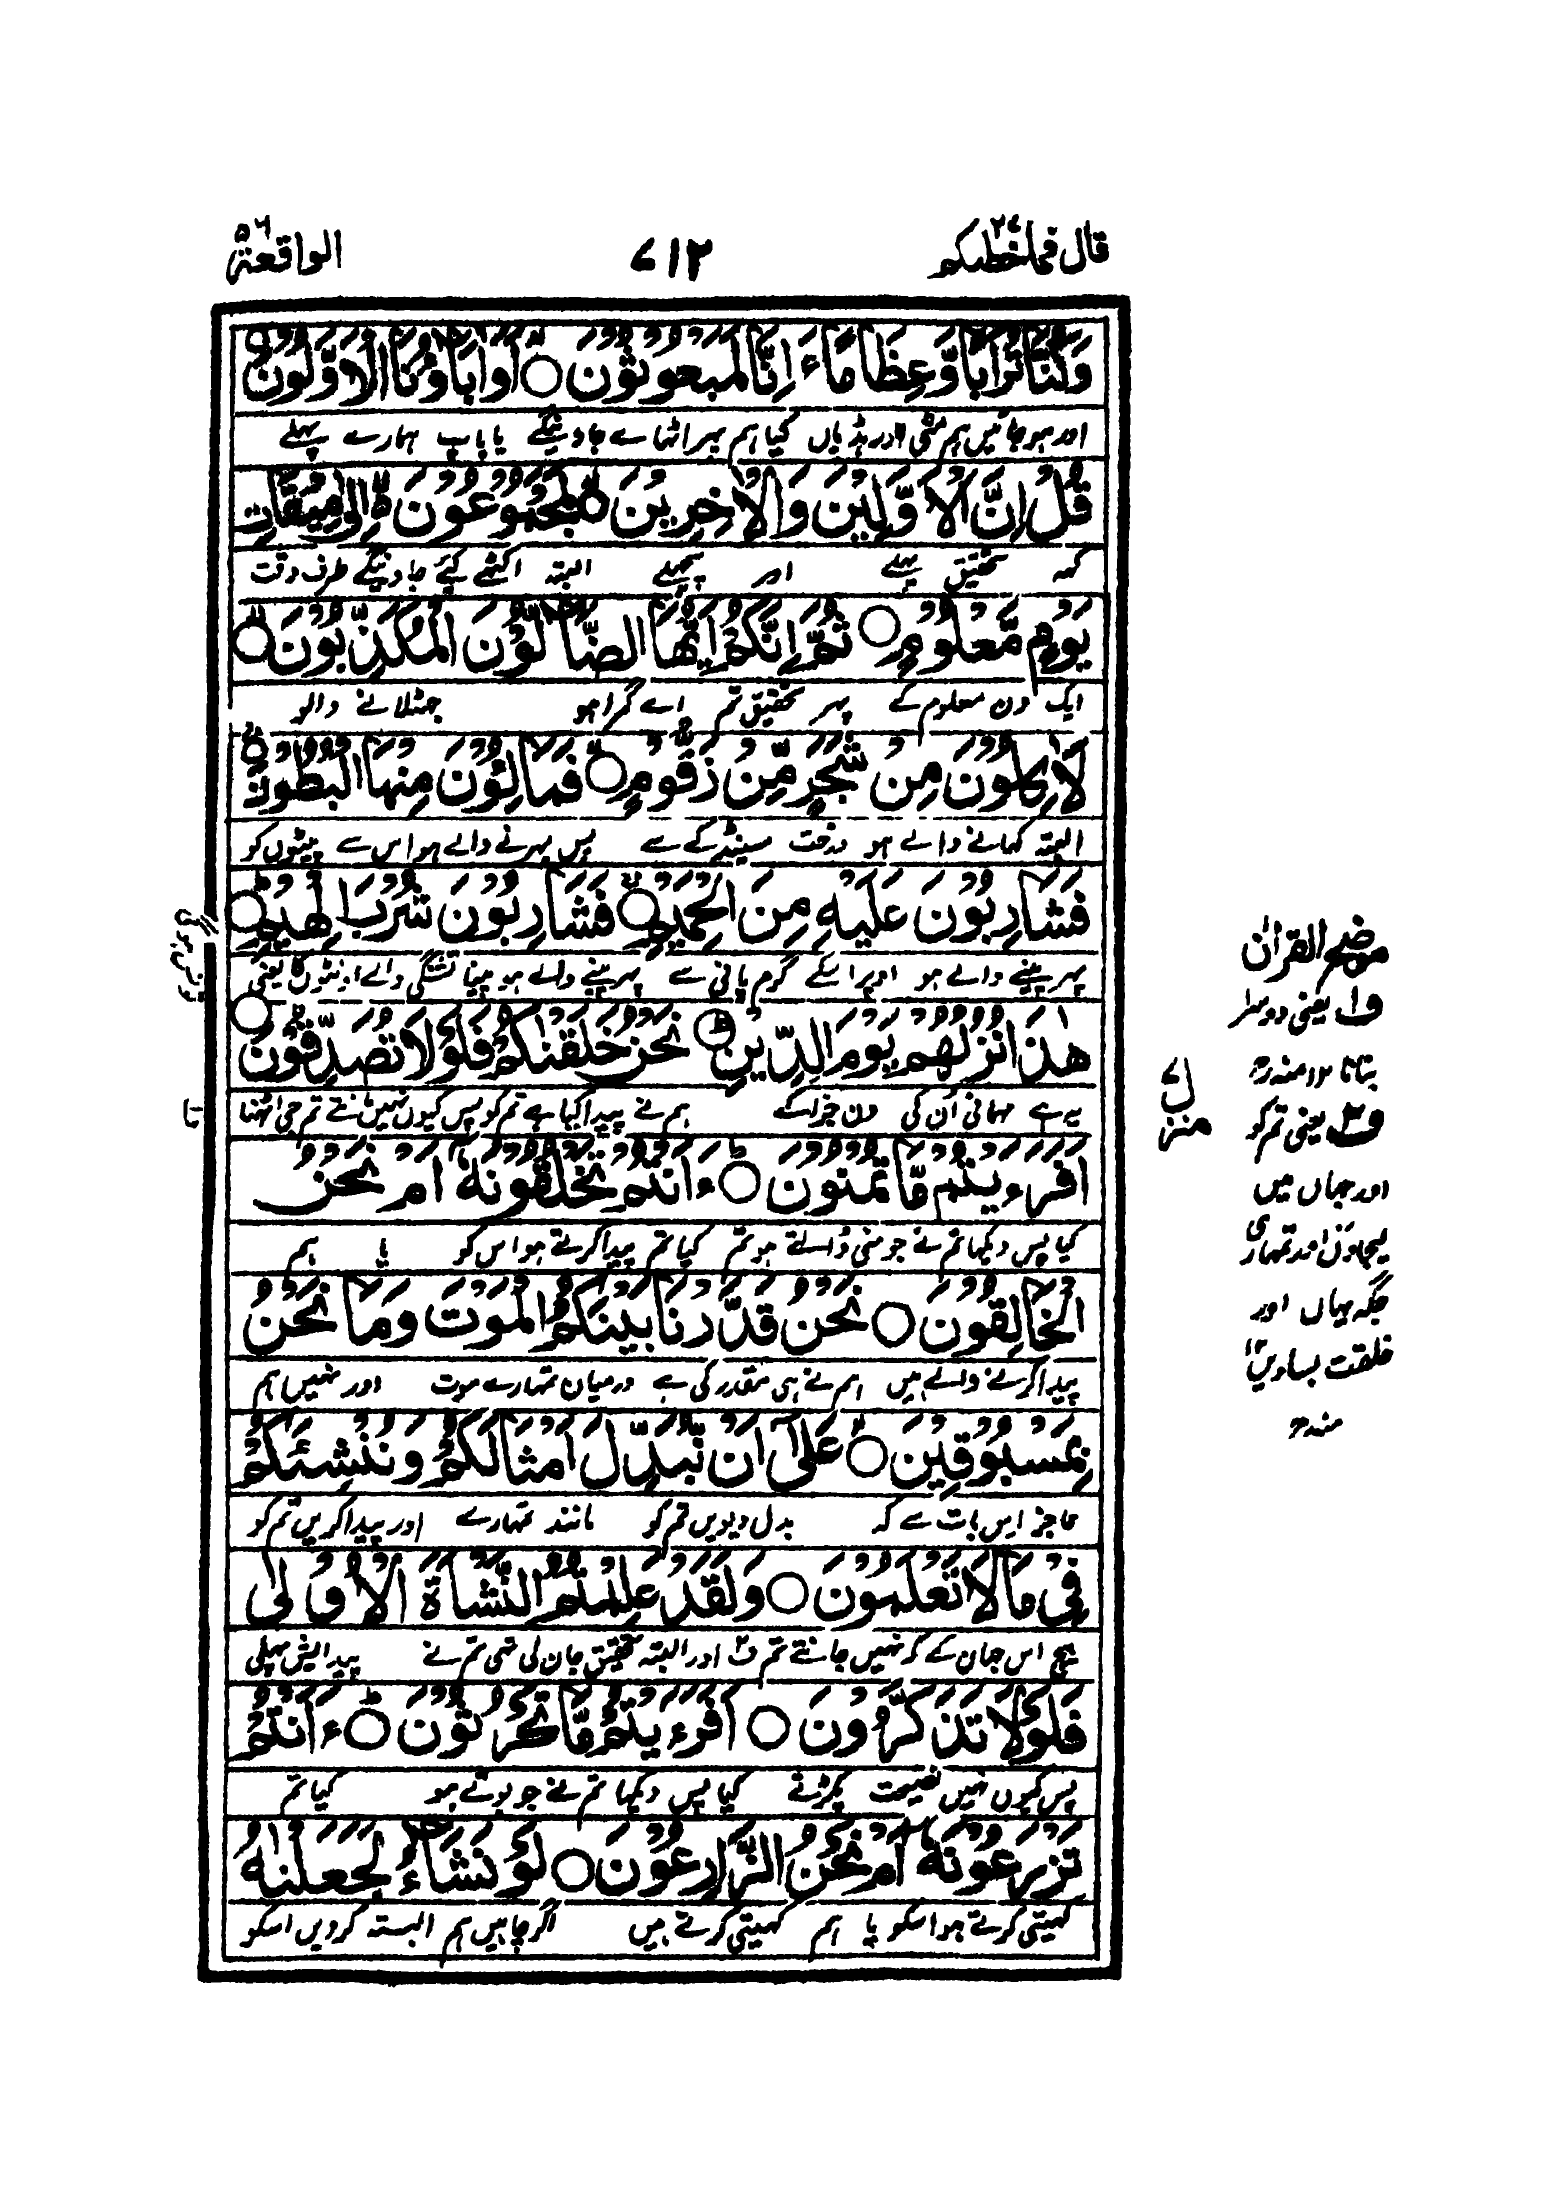 قال فما خطبكم ۲۷
۷۱۲
الواقعة ۵۶
وَكُنَّا تُرَابًا وَّعِظَامًا ءَاِنَّا لَمَبْعُوْثُوْنَ ○ اَوَاٰبَآؤُنَا الْاَوَّلُوْنَ
اور ہو جائیں ہم مٹی اور ہڈیاں کیا ہم پھر اٹھائے جاوینگے یا باپ ہمارے پہلے
قُلْ اِنَّ الْاَوَّلِيْنَ وَالْاٰخِرِيْنَ ○ لَمَجْمُوْعُوْنَ اِلٰى مِيْقَاتِ
کہہ تحقیق پہلے اور پچھلے البتہ اکٹھے کیے جاوینگے طرف وقت
يَوْمٍ مَّعْلُوْمٍ ○ ثُمَّ اِنَّكُمْ اَيُّهَا الضَّآلُّوْنَ الْمُكَذِّبُوْنَ ○
ایک دن معلوم کے پھر تحقیق تم اے گمراہو جھٹلانے والو
لَاٰكِلُوْنَ مِنْ شَجَرٍ مِّنْ زَقُّوْمٍ ○ فَمَالِـُٔوْنَ مِنْهَا الْبُطُوْنَ ○
البتہ کھانے والے ہو درخت سینڈ کے سے پس بھرنے والے ہو اس سے پیٹوں کو
فَشَارِبُوْنَ عَلَيْهِ مِنَ الْحَمِيْمِ ○ فَشَارِبُوْنَ شُرْبَ الْهِيْمِ ○
پھر پینے والے ہو اوپر اسکے گرم پانی سے پھر پینے والے ہو پینا تشنگی والے اونٹوں کا یعنی
هٰذَا نُزُلُهُمْ يَوْمَ الدِّيْنِ ○ نَحْنُ خَلَقْنٰكُمْ فَلَوْلَا تُصَدِّقُوْنَ ○
یہ ہے مہمانی ان کی دن جزا کے ہم نے پیدا کیا ہے تم کو پس کیوں نہیں مانتے تم جی اٹھنا
اَفَرَءَيْتُمْ مَّا تُمْنُوْنَ ○ ءَاَنْتُمْ تَخْلُقُوْنَهٗٓ اَمْ نَحْنُ
کیا پس دیکھا تم نے جو منی ڈالتے ہو تم کیا تم پیدا کرتے ہو اس کو یا ہم
الْخَالِقُوْنَ ○ نَحْنُ قَدَّرْنَا بَيْنَكُمُ الْمَوْتَ وَمَا نَحْنُ
پیدا کرنے والے ہیں ہم نے ہی مقدر کی ہے درمیان تمہارے موت اور نہیں ہم
بِمَسْبُوْقِيْنَ ○ عَلٰٓى اَنْ نُّبَدِّلَ اَمْثَالَكُمْ وَنُنْشِئَكُمْ
عاجز اس بات سے کہ بدل دیویں تم کو مانند تمہارے اور پیدا کریں تم کو
فِيْ مَا لَا تَعْلَمُوْنَ ○ وَلَقَدْ عَلِمْتُمُ النَّشْاَةَ الْاُوْلٰى
بیچ اس جہان کے کہ نہیں جانتے تم ف۲ اور البتہ تحقیق جان لی تھی تم نے پیدایش پہلی
فَلَوْلَا تَذَكَّرُوْنَ ○ اَفَرَءَيْتُمْ مَّا تَحْرُثُوْنَ ○ ءَاَنْتُمْ
پس کیوں نہیں نصیحت پکڑتے کیا پس دیکھا تم نے جو بوتے ہو کیا تم
تَزْرَعُوْنَهٗٓ اَمْ نَحْنُ الزَّارِعُوْنَ ○ لَوْ نَشَآءُ لَجَعَلْنٰهُ
کھیتی کرتے ہو اسکو یا ہم کھیتی کرتے ہیں اگر چاہیں ہم البتہ کردیں اسکو
موضح القرآن
ف۱ یعنی دوسرا
بنانا ۱۲ منہ رح
ف۲ یعنی تم کو
اور جہاں میں
لیجاویں اور تمہاری
جگہ یہاں اور
خلقت بساویں ۱۲
منہ رح
منزل ۷